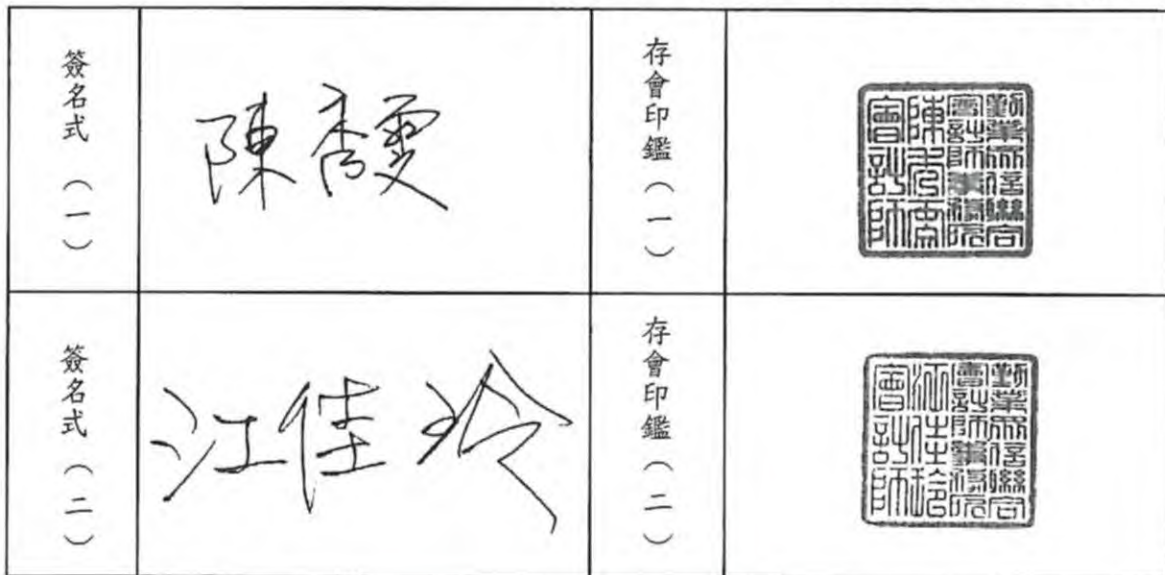 簽名式（一）
陳秀雯
存會印鑑（一）
勤業眾信聯合
會計師事務所
陳秀雯
會計師
簽名式（二）
江佳玲
存會印鑑（二）
勤業眾信聯合
會計師事務所
江佳玲
會計師